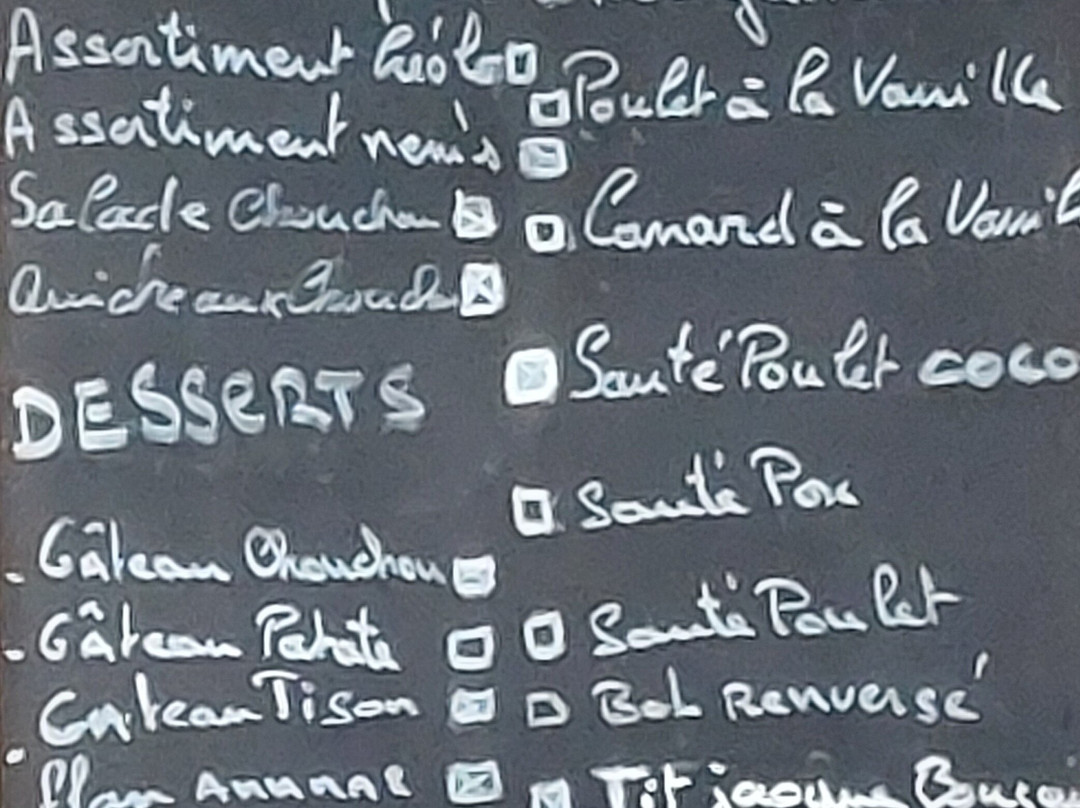 Assortiment
Assortiment nem's
Salade Chouchou
Quiche aux Chouchou
DESSERTS
- Gâteau Chouchou
- Gâteau Patate
. Gateau Tison
flan ANANAS
Poulet à la Vanille
Canard à la Vanil
Sauté Poulet coco
Sauté Porc
Sauté Poulet
Bol Renversé
Tit jacque